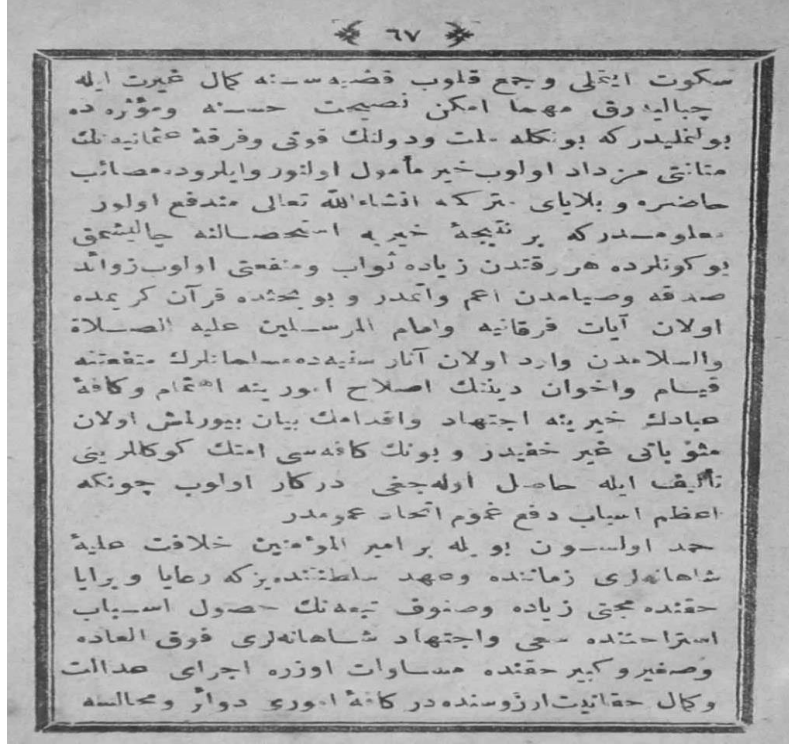 ٦٧
سكوت ايتملى وجمع قلوب قضيه‌سنه كمال غيرت ايله
چباليه‌رق مهما امكن نصيحت حسنه ومؤثره ده
بولنمليدركه بونكله ملت ودولتك قوتى وفرقهٔ عثمانيه‌نك
متانتى مزداد اولوب خير مأمول اولنور وايلروده مصائب
حاضره و بلاياى متركه انشاءالله تعالى مندفع اولور
معلومدركه بر نتيجهٔ خيريه استحصالنه چاليشمق
بو كونلرده هر رقتدن زياده ثواب ومنفعتى اولوب زوائد
صدقه وصيامدن اعم واتمدر و بو بحثده قرآن كريمده
اولان آيات فرقانيه وامام المرسلين عليه الصلاة
والسلامدن وارد اولان آثار سنيه‌ده مسلمانلرك منفعتنه
قيام واخوان دينك اصلاح امورينه اهتمام وكافهٔ
عبادك خيرينه اجتهاد واقدامك بيان بيورلمش اولان
مثوباتى غير خفيدر و بونك كافه‌سى امتك كوكللرينى
تأليف ايله حاصل اوله‌جغى دركار اولوب چونكه
اعظم اسباب دفع غموم اتحاد عمومدر
حمد اولسون بويله بر امير المؤمنين خلافت عليهٔ
شاهانه‌لرى زماننده وعهد سلطنتنده‌يزكه رعايا وبرايا
حقنده محبتى زياده وصنوف تبعه‌نك حصول اسباب
استراحتنده سعى واجتهاد شاهانه‌لرى فوق العاده
وصغير وكبير حقنده مساوات اوزره اجراى عدالت
وكمال حقانيت ارزوسنده‌در كافهٔ امورى دوائر ومجالسه